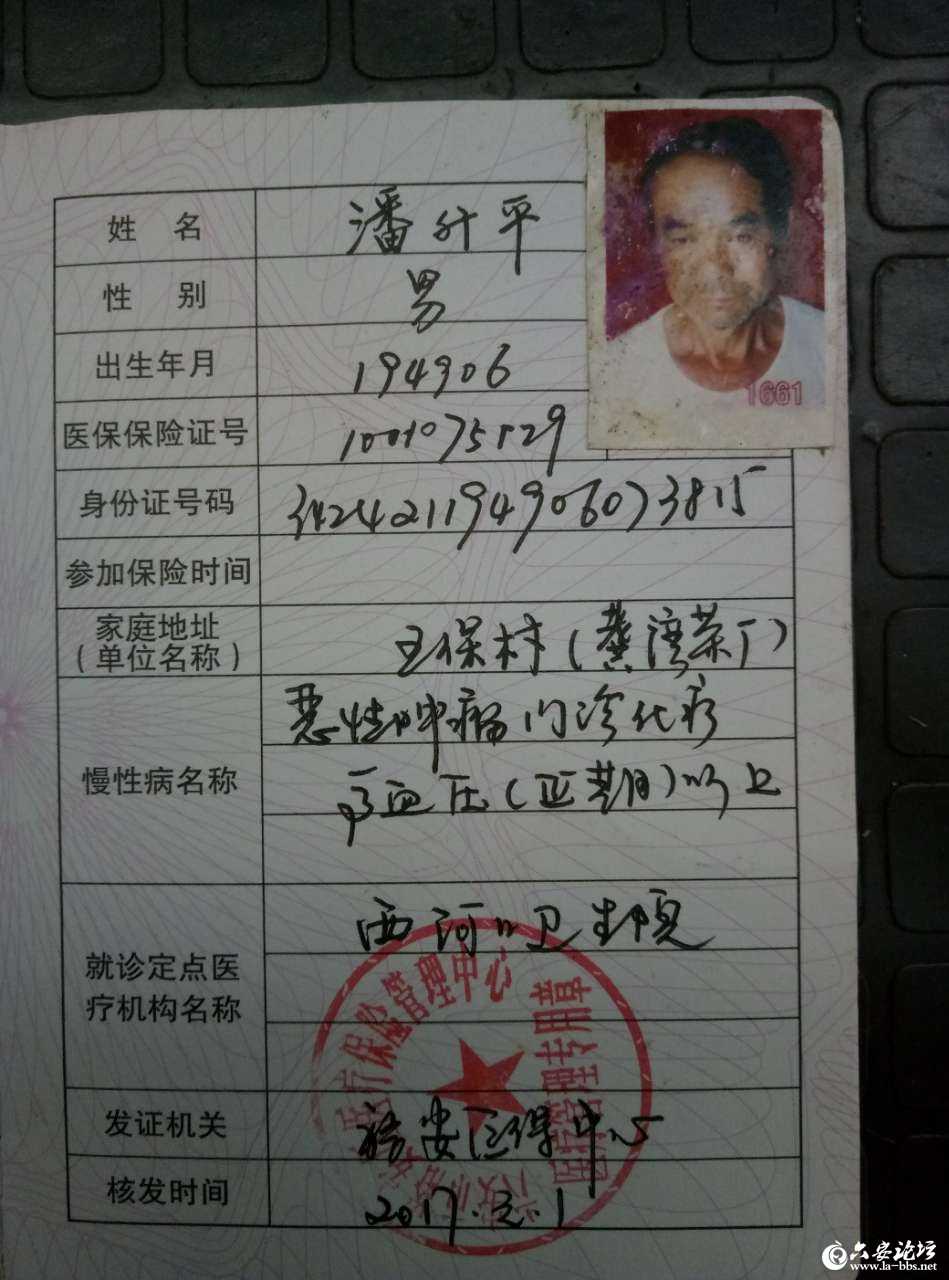 姓 名 潘升平
1661
性 别 男
出生年月 194906
医保保险证号 1001075829
身份证号码 342421194906073815
参加保险时间
家庭地址
(单位名称) 王保村(龚湾茶厂)
慢性病名称 恶性肿瘤门诊化疗
高血压(Ⅱ期)以上
就诊定点医
疗机构名称 西河口卫生院
医疗保险管理中心
医疗管理专用章
发证机关 裕安医保中心
核发时间 2017.
六安论坛
www.la-bbs.net